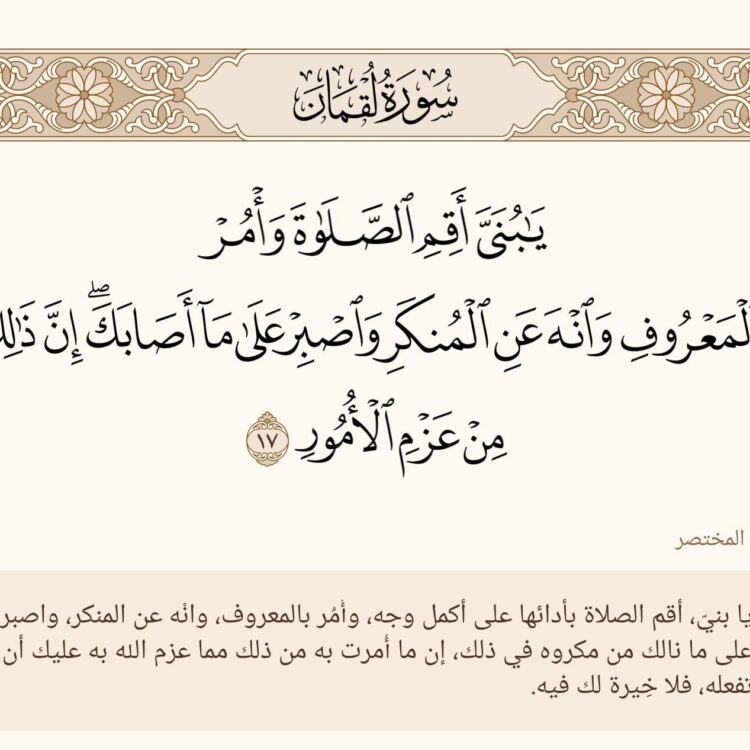 سُورَةُ لُقْمَان
يَـٰبُنَىَّ أَقِمِ ٱلصَّلَوٰةَ وَأْمُرْ
لْمَعْرُوفِ وَٱنْهَ عَنِ ٱلْمُنكَرِ وَٱصْبِرْ عَلَىٰ مَآ أَصَابَكَۖ إِنَّ ذَٰلِكَ
مِنْ عَزْمِ ٱلْأُمُورِ ١٧
المختصر
يا بنيّ، أقم الصلاة بأدائها على أكمل وجه، وأْمُر بالمعروف، وانْه عن المنكر، واصبر
على ما نالك من مكروه في ذلك، إن ما أُمرت به من ذلك مما عزم الله به عليك أن
تفعله، فلا خِيرة لك فيه.